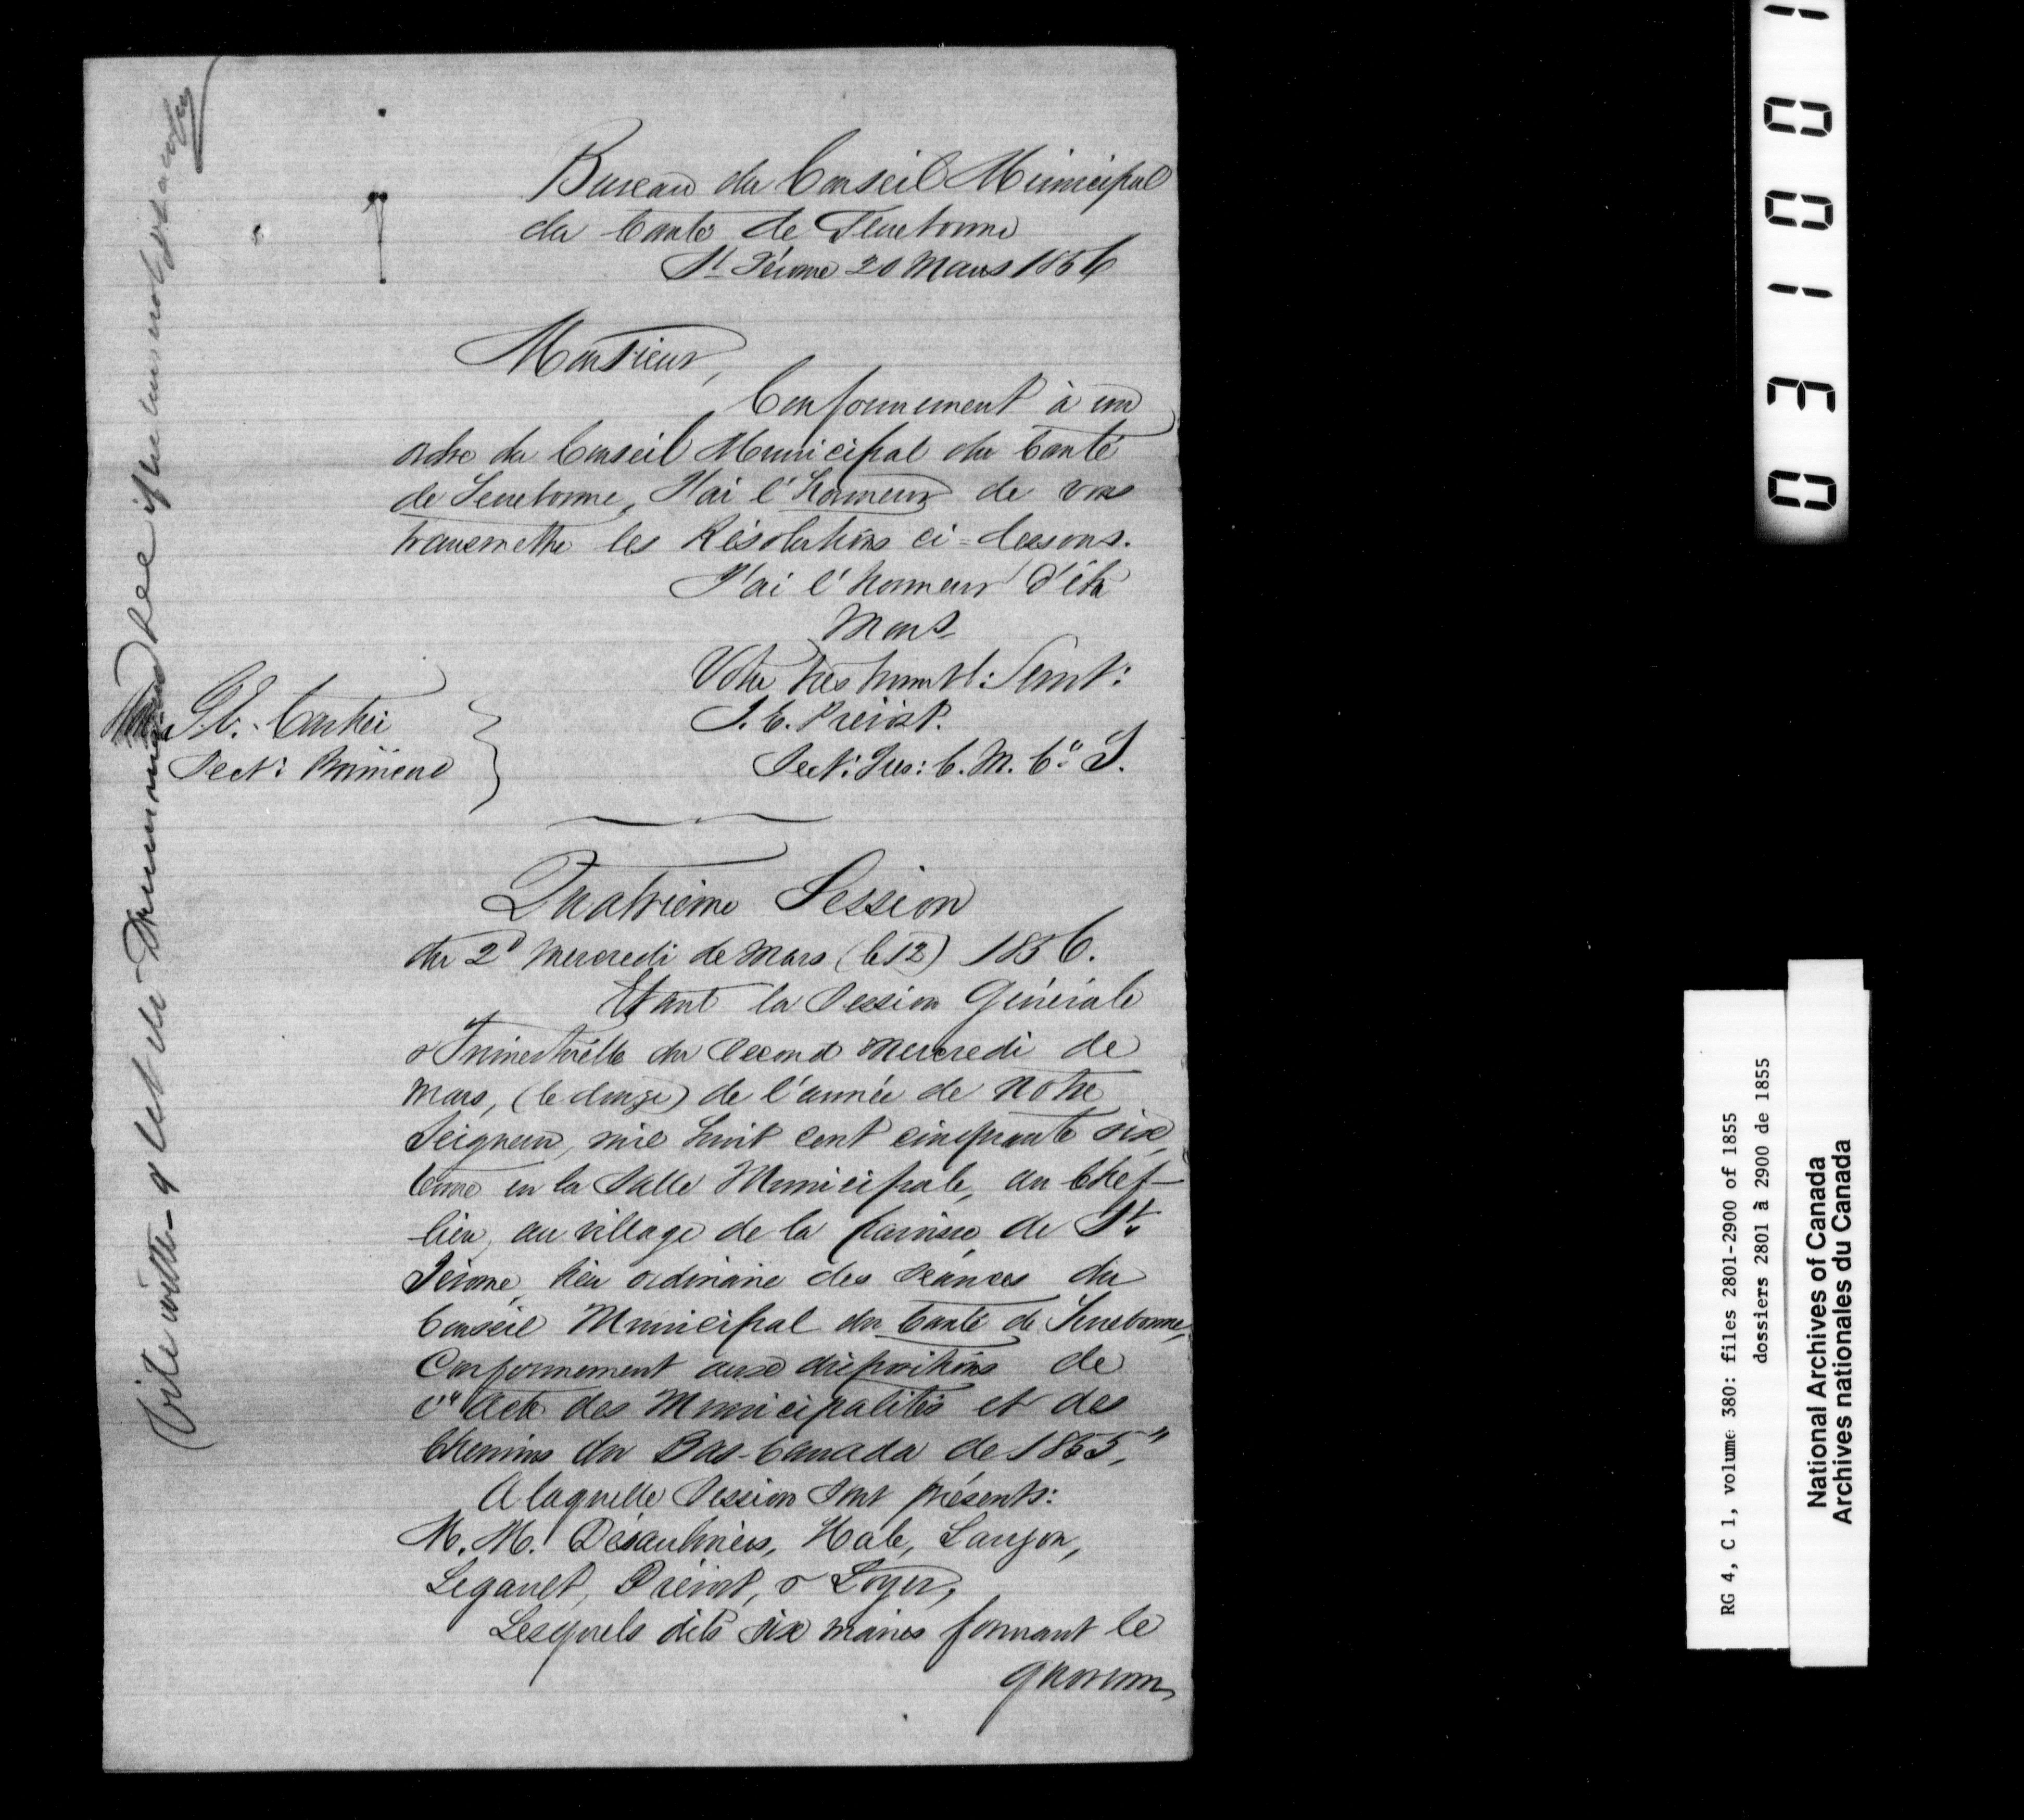 Bureau du Conseil Municipal
du Comté de Terrebonne
St Jérome 20 Mars 1856
Monsieur,
Conformement à un
ordre du Conseil Municipal du Comté
de Terrebonne, J'ai l'Honneur de vous
transmettre les Résolutions ci-dessous.
J'ai l'honneur d'être
Mons
Votre très humbl: Servt:
J. E. Prévost.
Sect: Tres: C. M. Co. T.
G. E. Cartier
Sect: Provincial
Quatrième Session
du 2d Mercredi de Mars (le 12) 1856.
Etant la Session Générale
& Trimestrielle du Second Mercredi de
Mars, (le douze) de l'année de Notre
Seigneur, mil huit cent cinquante six,
tenue en la Salle Municipale, au Chef-
lieu, au village de la paroisse de St.
Jérome, lieu ordinaire des séances du
Conseil Municipal du Comté de Terrebonne,
Conformement aux dispositions de
l'"Acte des Municipalités et des
Chemins du Bas-Canada de 1855,"
A laquelle Session sont présents:
M. M. Désaulniers, Hale, Lauzon,
Legault, Prévost, & Loyer,
Lesquels dits six maires formant le
quorum
see if
Drummond
0 3 1 0 0 1
RG 4, C 1, volume 380: files 2801-2900 of 1855
dossiers 2801 à 2900 de 1855
National Archives of Canada
Archives nationales du Canada